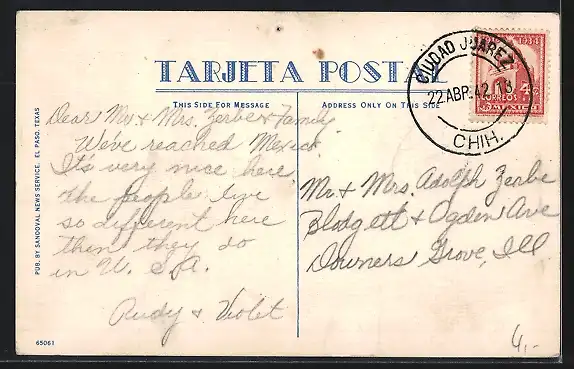 TARJETA POSTAL
THIS SIDE FOR MESSAGE
ADDRESS ONLY ON THIS SIDE
CIUDAD JUAREZ
22 ABR. 42 13
CHIH.
1934
4c
CORREOS
MEXICO
Dear Mr & Mrs. Zerbe & Family
We've reached Mexico.
It's very nice here.
The people live
so different here
then they do
in U. S. A.
Rudy & Violet
Mr & Mrs. Adolph Zerbe
Blodgett & Ogden Ave
Downers Grove, Ill
PUB. BY SANDOVAL NEWS SERVICE, EL PASO, TEXAS
65061
4,-